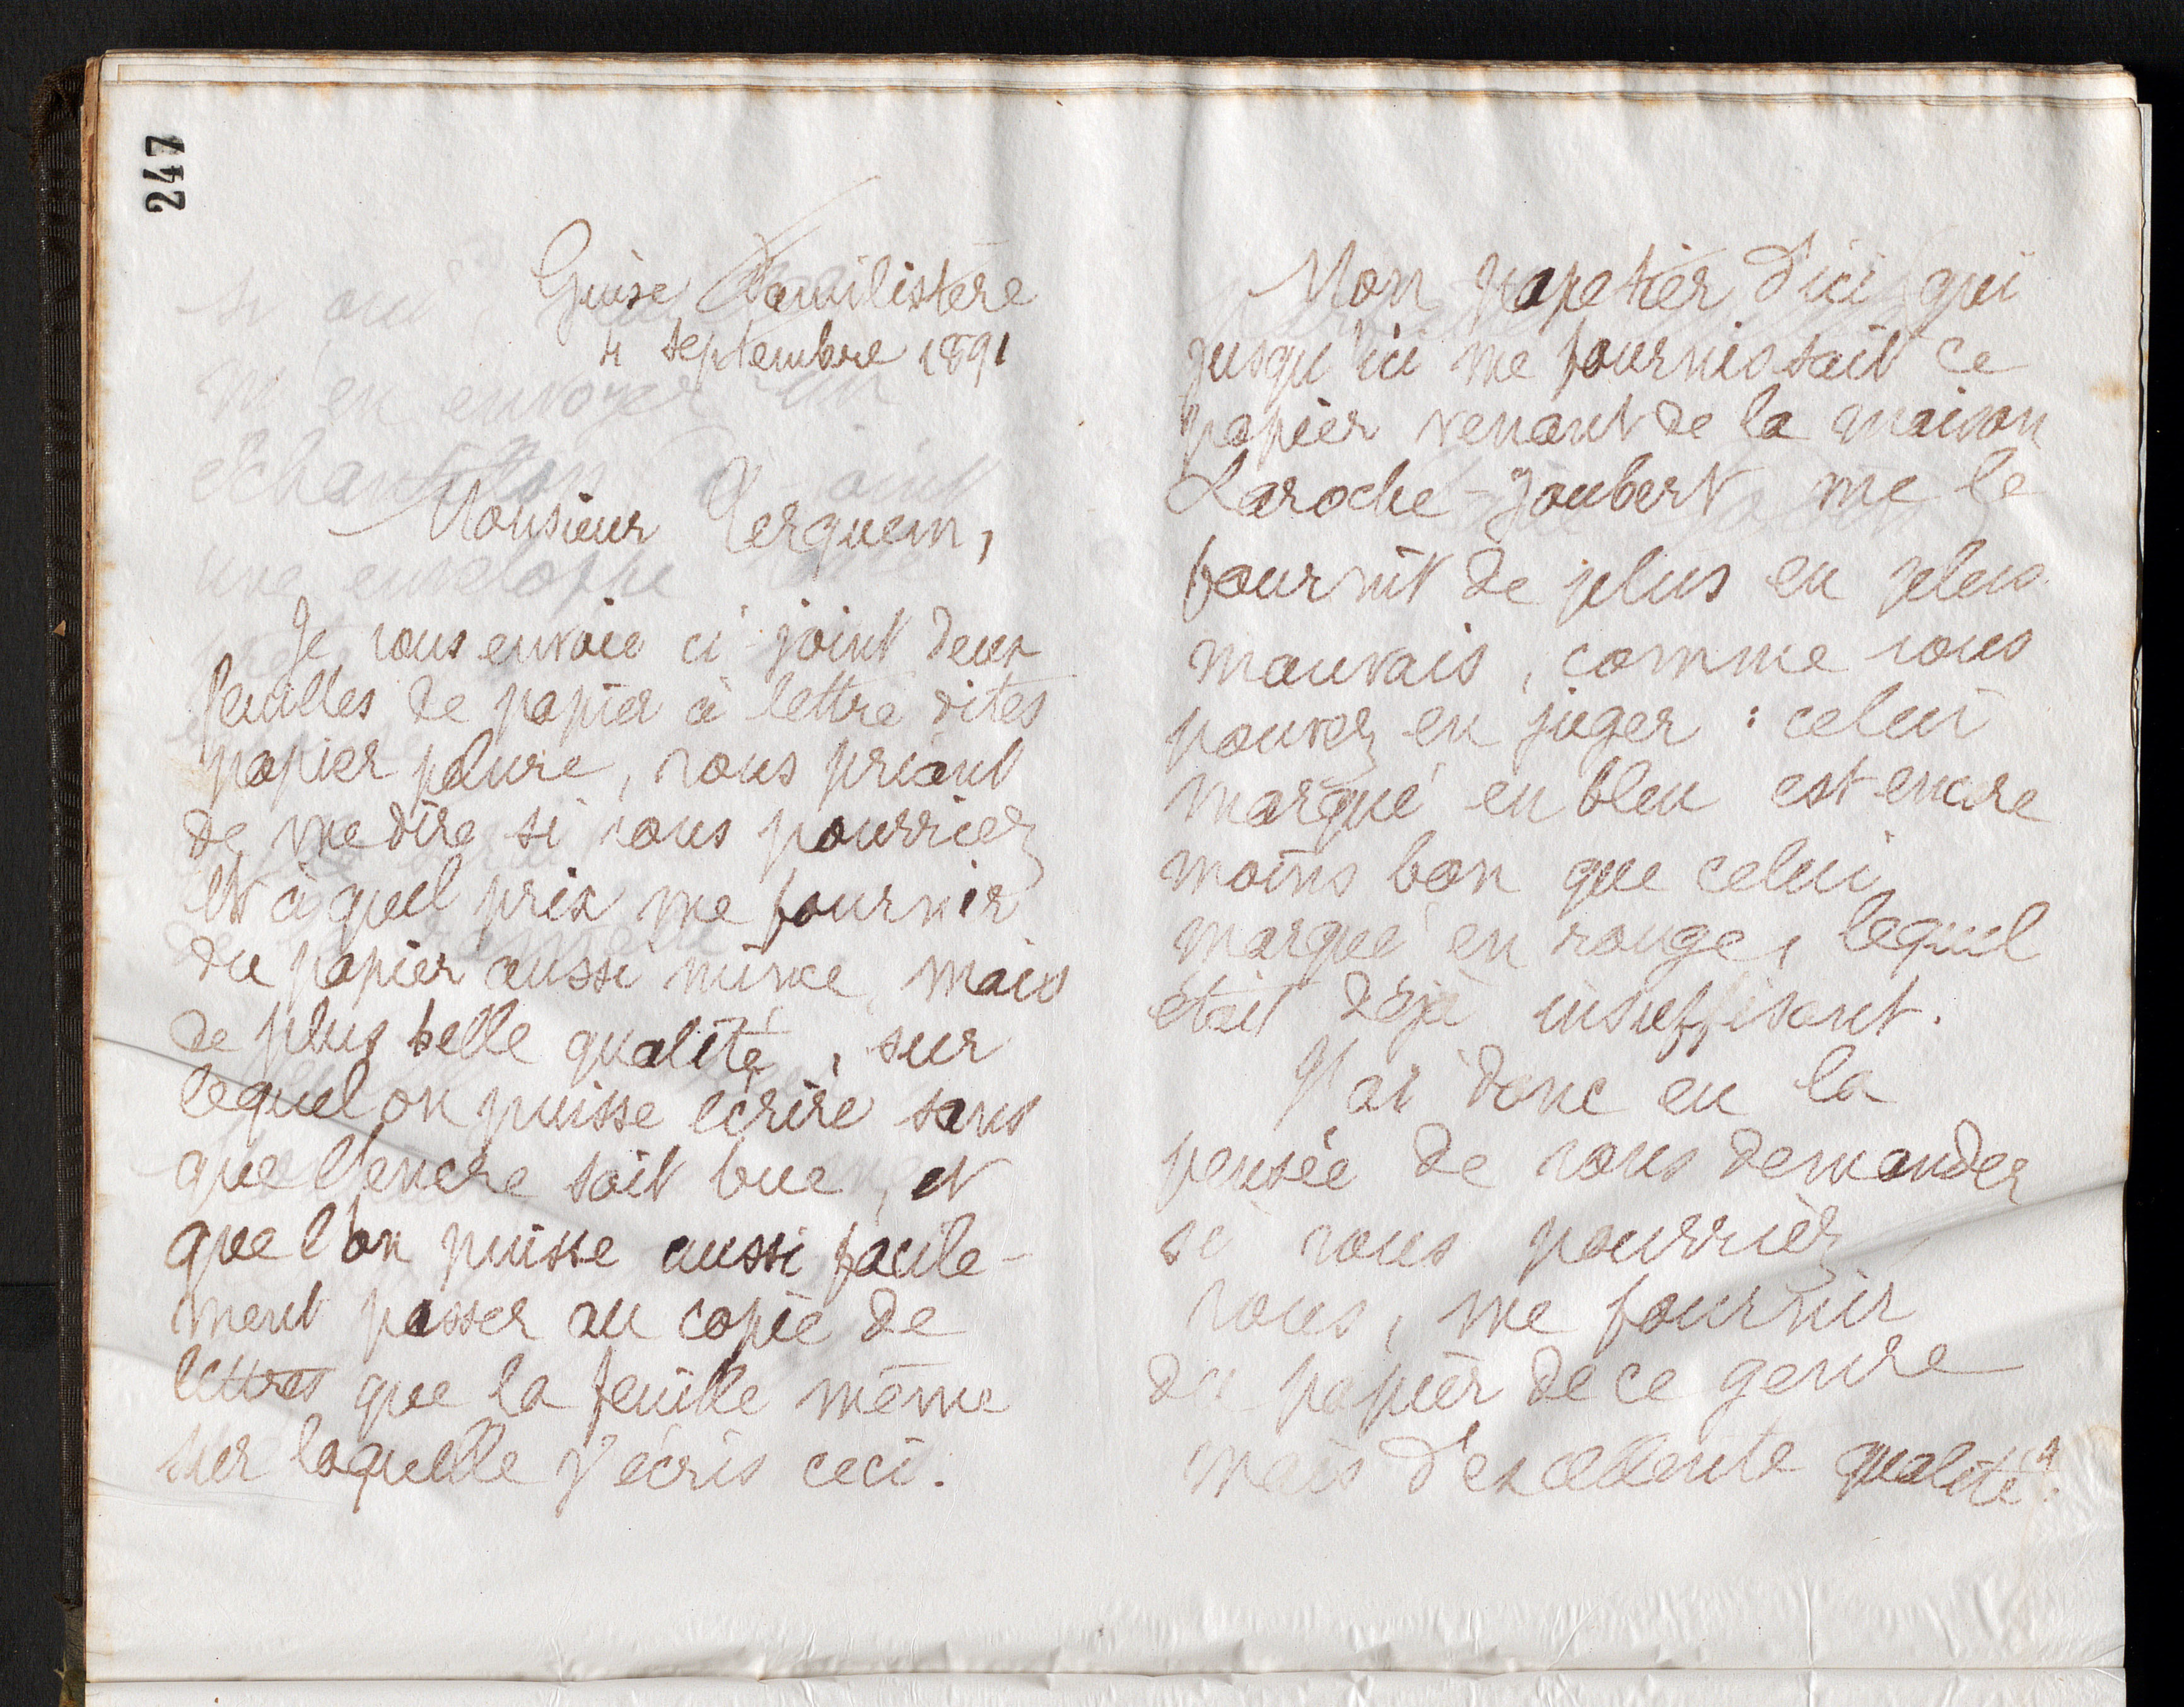 247
Guise Familistère
4 septembre 1891
Monsieur Terquem,
Je vous envoie ci-joint deux
feuilles de papier à lettre dites
papier pelure, vous priant
de me dire si vous pourriez
et à quel prix me fournir
du papier aussi mince, mais
de plus belle qualité, sur
lequel on puisse écrire sans
que l'encre soit bue, et
que l'on puisse aussi facile-
ment passer au copie de
lettres que la feuille même
sur laquelle j'écris ceci.
Mon papetier d'ici qui
jusqu'ici me fournissait ce
papier venant de la maison
Laroche-Joubert me le
fournit de plus en plus
mauvais, comme vous
pouvez en juger : celui
marqué en bleu est encore
moins bon que celui
marqué en rouge, lequel
était déjà insuffisant.
J'ai donc eu la
pensée de vous demander
si vous pourriez
vous, me fournir
du papier de ce genre
mais d'excellente qualité ?